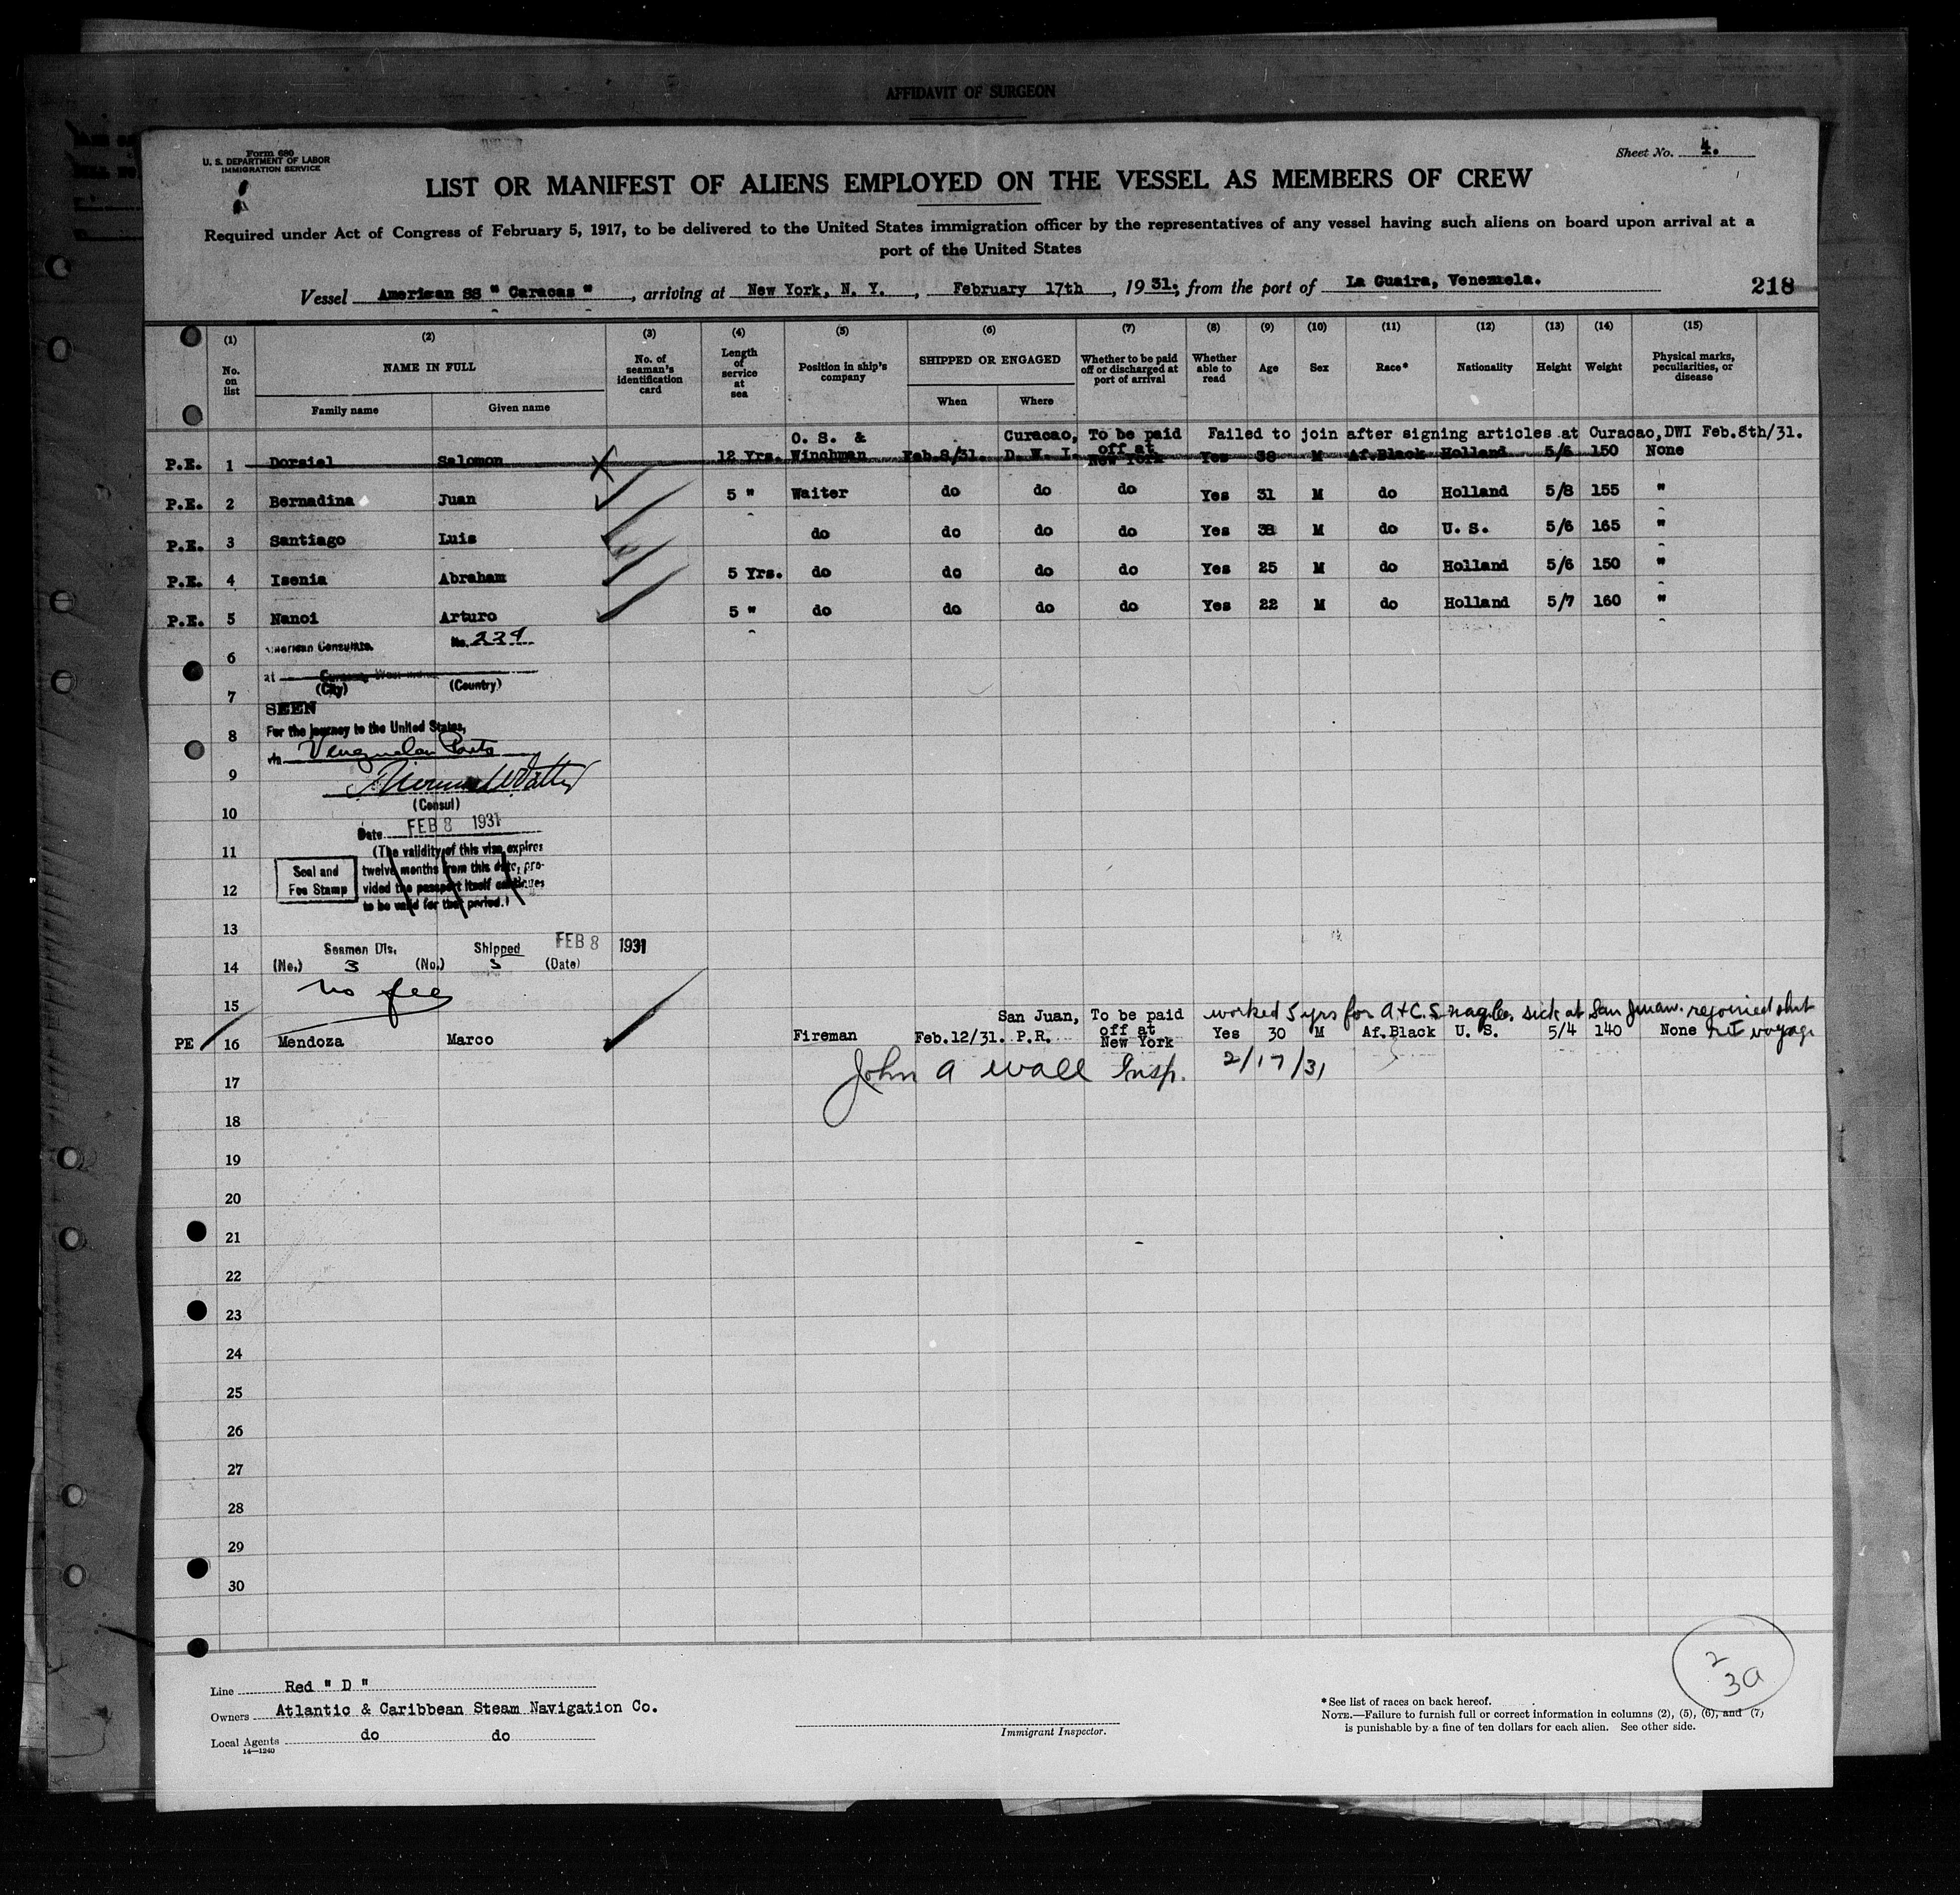 AFFIDAVIT OF SURGEON
Form 680
U. S. DEPARTMENT OF LABOR
IMMIGRATION SERVICE
Sheet No. 4.
LIST OR MANIFEST OF ALIENS EMPLOYED ON THE VESSEL AS MEMBERS OF CREW
Required under Act of Congress of February 5, 1917, to be delivered to the United States immigration officer by the representatives of any vessel having such aliens on board upon arrival at a
port of the United States
Vessel American SS " Caracas ", arriving at New York, N. Y., February 17th, 1931, from the port of La Guaira, Venezuela. 218
(1) (2) (3) (4) (5) (6) (7) (8) (9) (10) (11) (12) (13) (14) (15)
No. on list NAME IN FULL No. of seaman's identification card Length of service at sea Position in ship's company SHIPPED OR ENGAGED Whether to be paid off or discharged at port of arrival Whether able to read Age Sex Race* Nationality Height Weight Physical marks, peculiarities, or disease
Family name Given name When Where
O. S. & Curacao, To be paid Failed to join after signing articles at Curacao, DWI Feb.8th/31.
P.E. 1 Dorsiel Salomon 12 Yrs. Winchman Feb.8/31. D. W. I. off at New York Yes 38 M Af.Black Holland 5/8 150 None
P.E. 2 Bernadina Juan 5 " Waiter do do do Yes 31 M do Holland 5/8 155 "
P.E. 3 Santiago Luis do do do do Yes 38 M do U. S. 5/6 165 "
P.E. 4 Isenia Abraham 5 Yrs. do do do do Yes 25 M do Holland 5/6 150 "
P.E. 5 Nanoi Arturo 5 " do do do do Yes 22 M do Holland 5/7 160 "
American Consulate, No. 229
6
at Curacao, West Indies
(City) (Country)
7
SEEN
For the journey to the United States,
8
via Venezuelan Ports
9
(Consul)
10
Date FEB 8 1931
11 (The validity of this visa expires
twelve months from this date, pro-
Seal and
Fee Stamp
12 vided the passport itself continues
to be valid for that period.)
13
Seamen Dis. Shipped FEB 8 1931
14 (No.) 3 (No.) 5 (Date)
no fee
15
San Juan, To be paid worked 5 yrs for A+C.S sick at San Juan. rejoined
PE 16 Mendoza Marco Fireman Feb.12/31. P.R. off at New York Yes 30 M Af.Black U. S. 5/4 140 None voyage
John A Wall Insp. 2/17/31
17
18
19
20
21
22
23
24
25
26
27
28
29
30
2
30
Line Red " D "
Owners Atlantic & Caribbean Steam Navigation Co.
Local Agents do do
14—1240
Immigrant Inspector.
* See list of races on back hereof.
NOTE.—Failure to furnish full or correct information in columns (2), (5), (6), and (7)
is punishable by a fine of ten dollars for each alien. See other side.